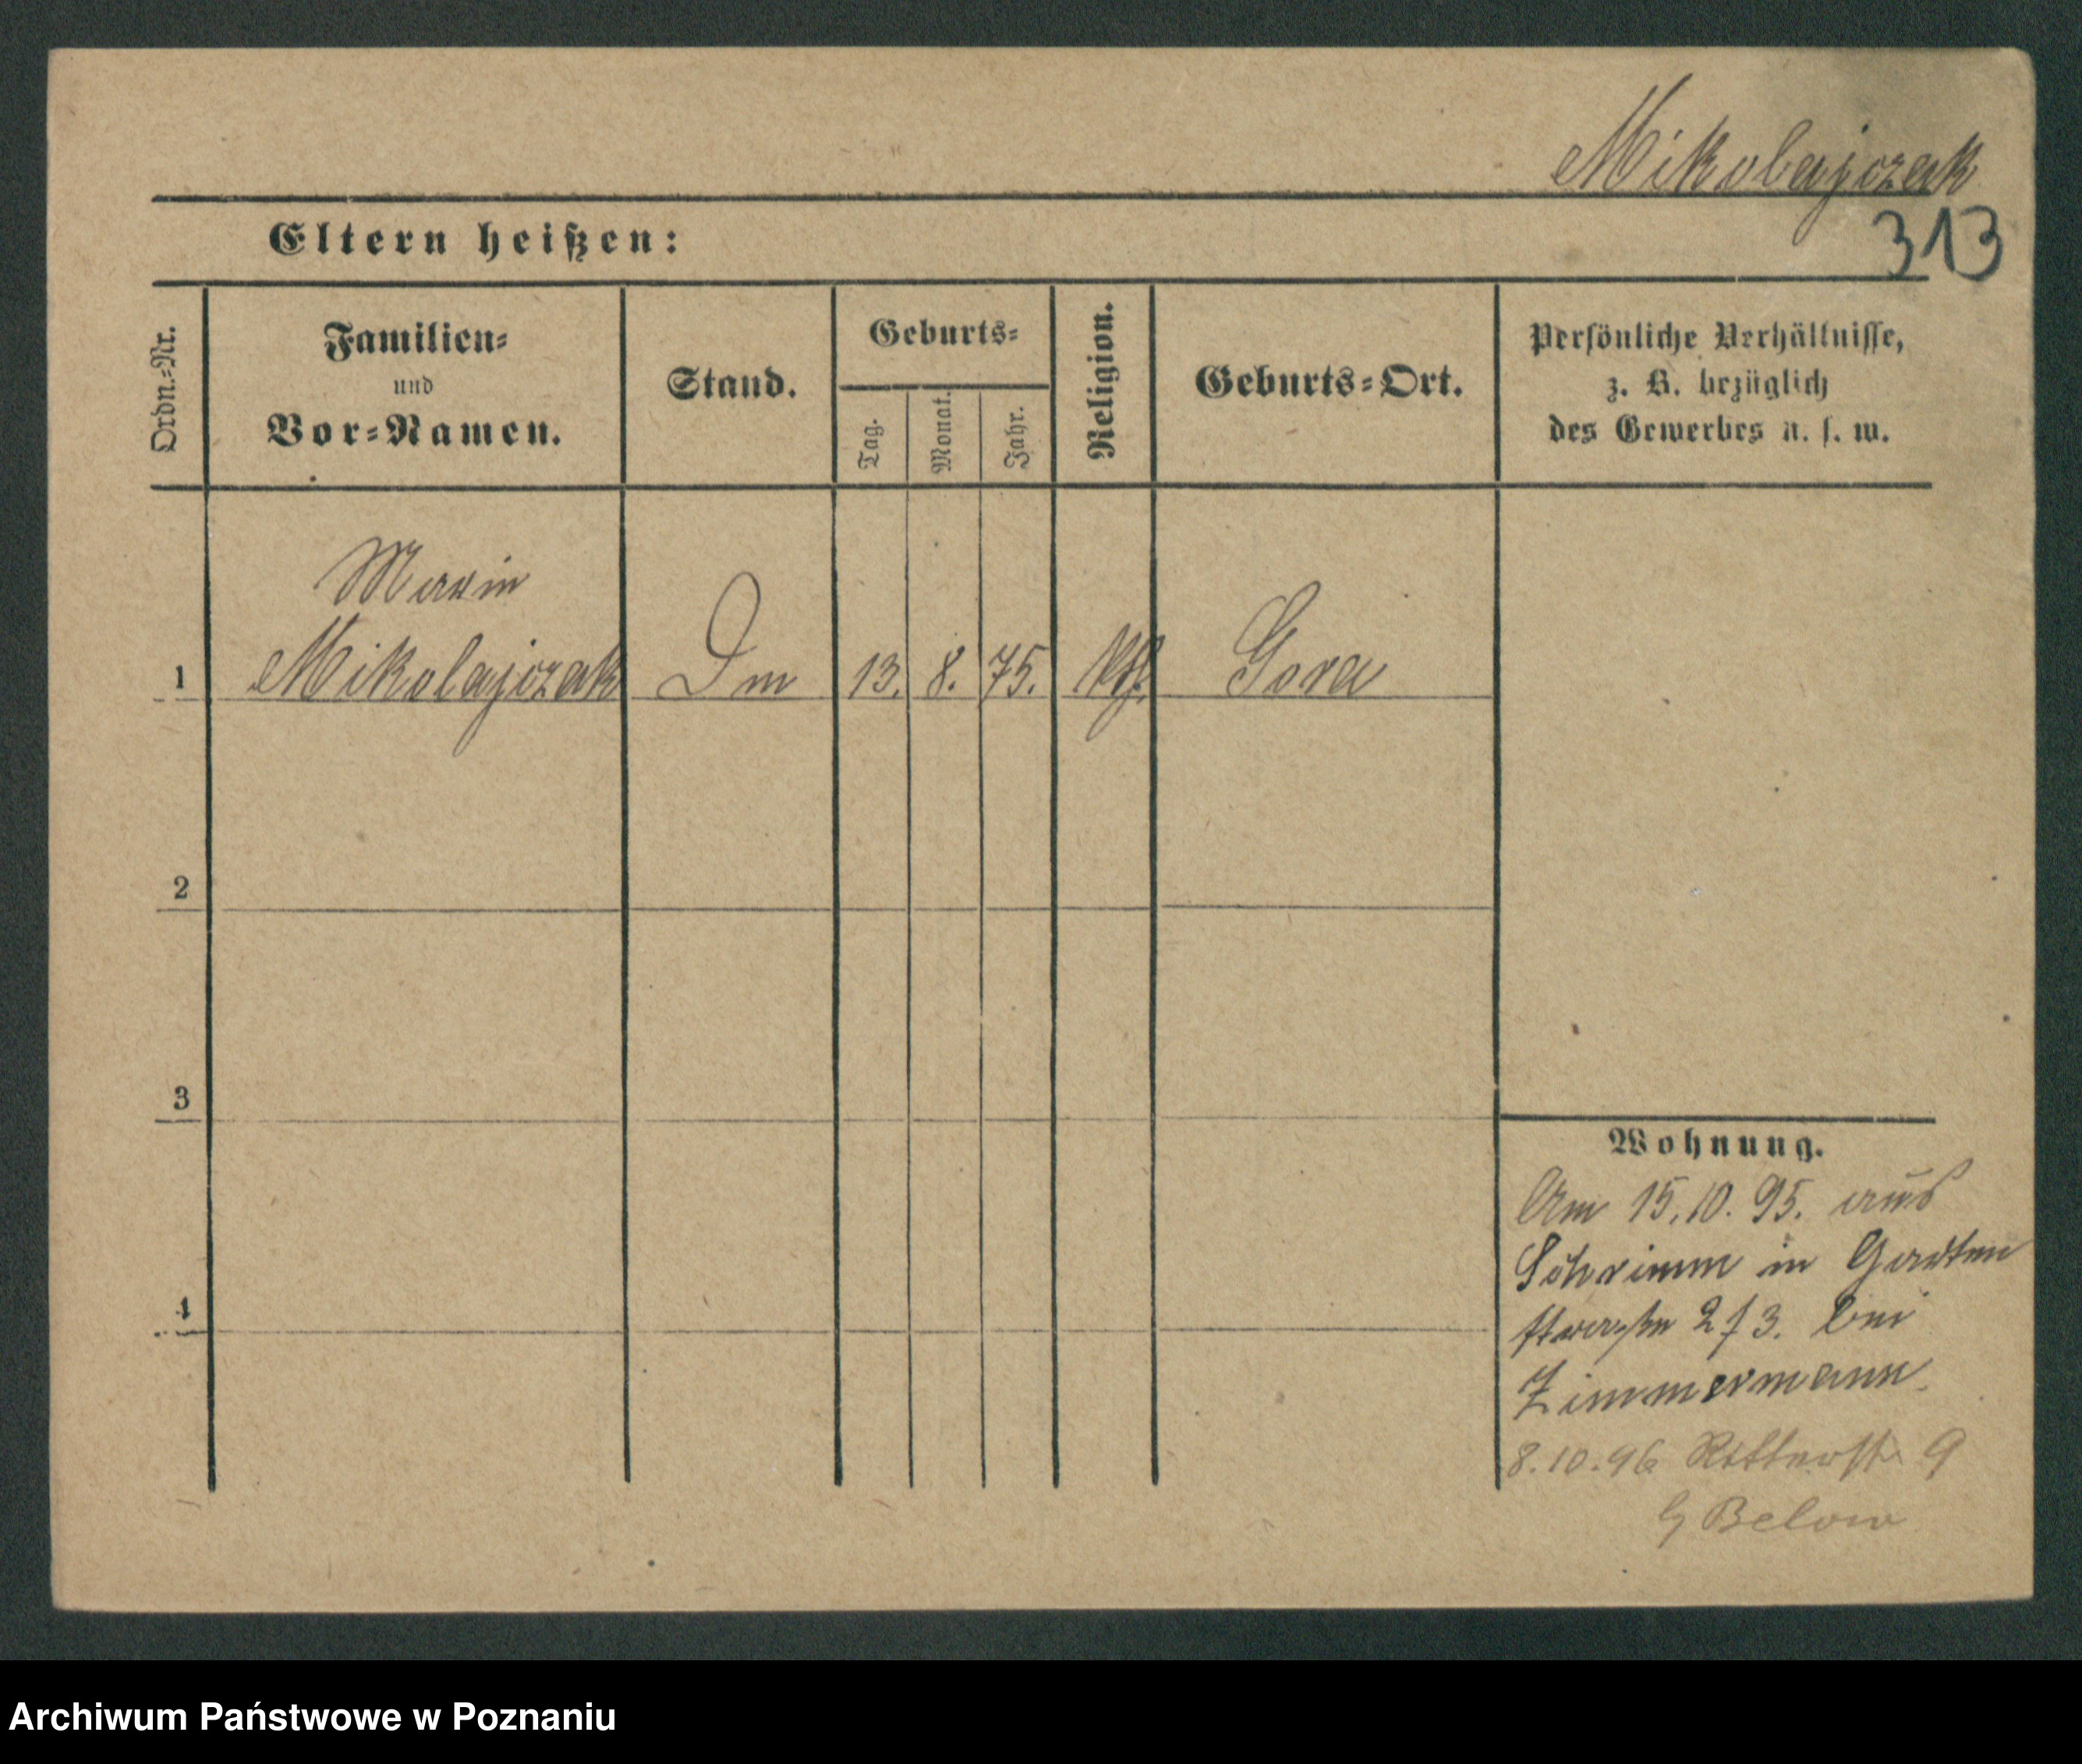 Mikolajczak
313
Eltern heißen:
Ordn.-Nr.
Familien-
und
Vor-Namen.
Stand.
Geburts-
Tag.
Monat.
Jahr.
Religion.
Geburts-Ort.
Persönliche Verhältnisse,
z. B. bezüglich
des Gewerbes u. s. w.
Marie
1 Mikolajczak Dm 13. 8. 75. Kth. Gora
2
3
4
Wohnung.
Am 15.10.95. aus
Schrimm in Garten
straße 2/3. bei
Zimmermann.
8.10.96 Ritterstr 9
b Below
Archiwum Państwowe w Poznaniu